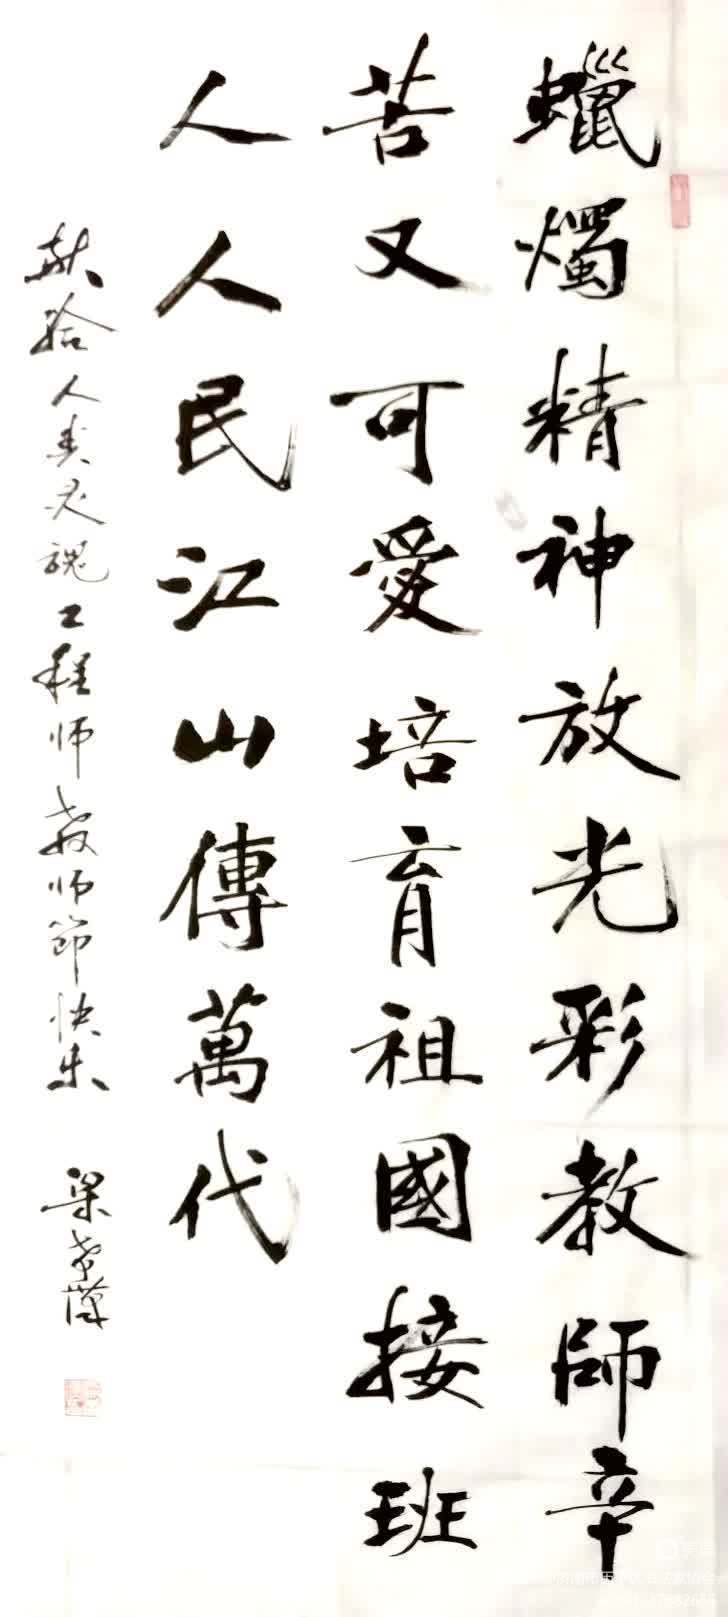 蠟燭精神放光彩教師辛
苦又可愛培育祖國接班
人人民江山傳萬代
献给人类灵魂工程师教师節快乐